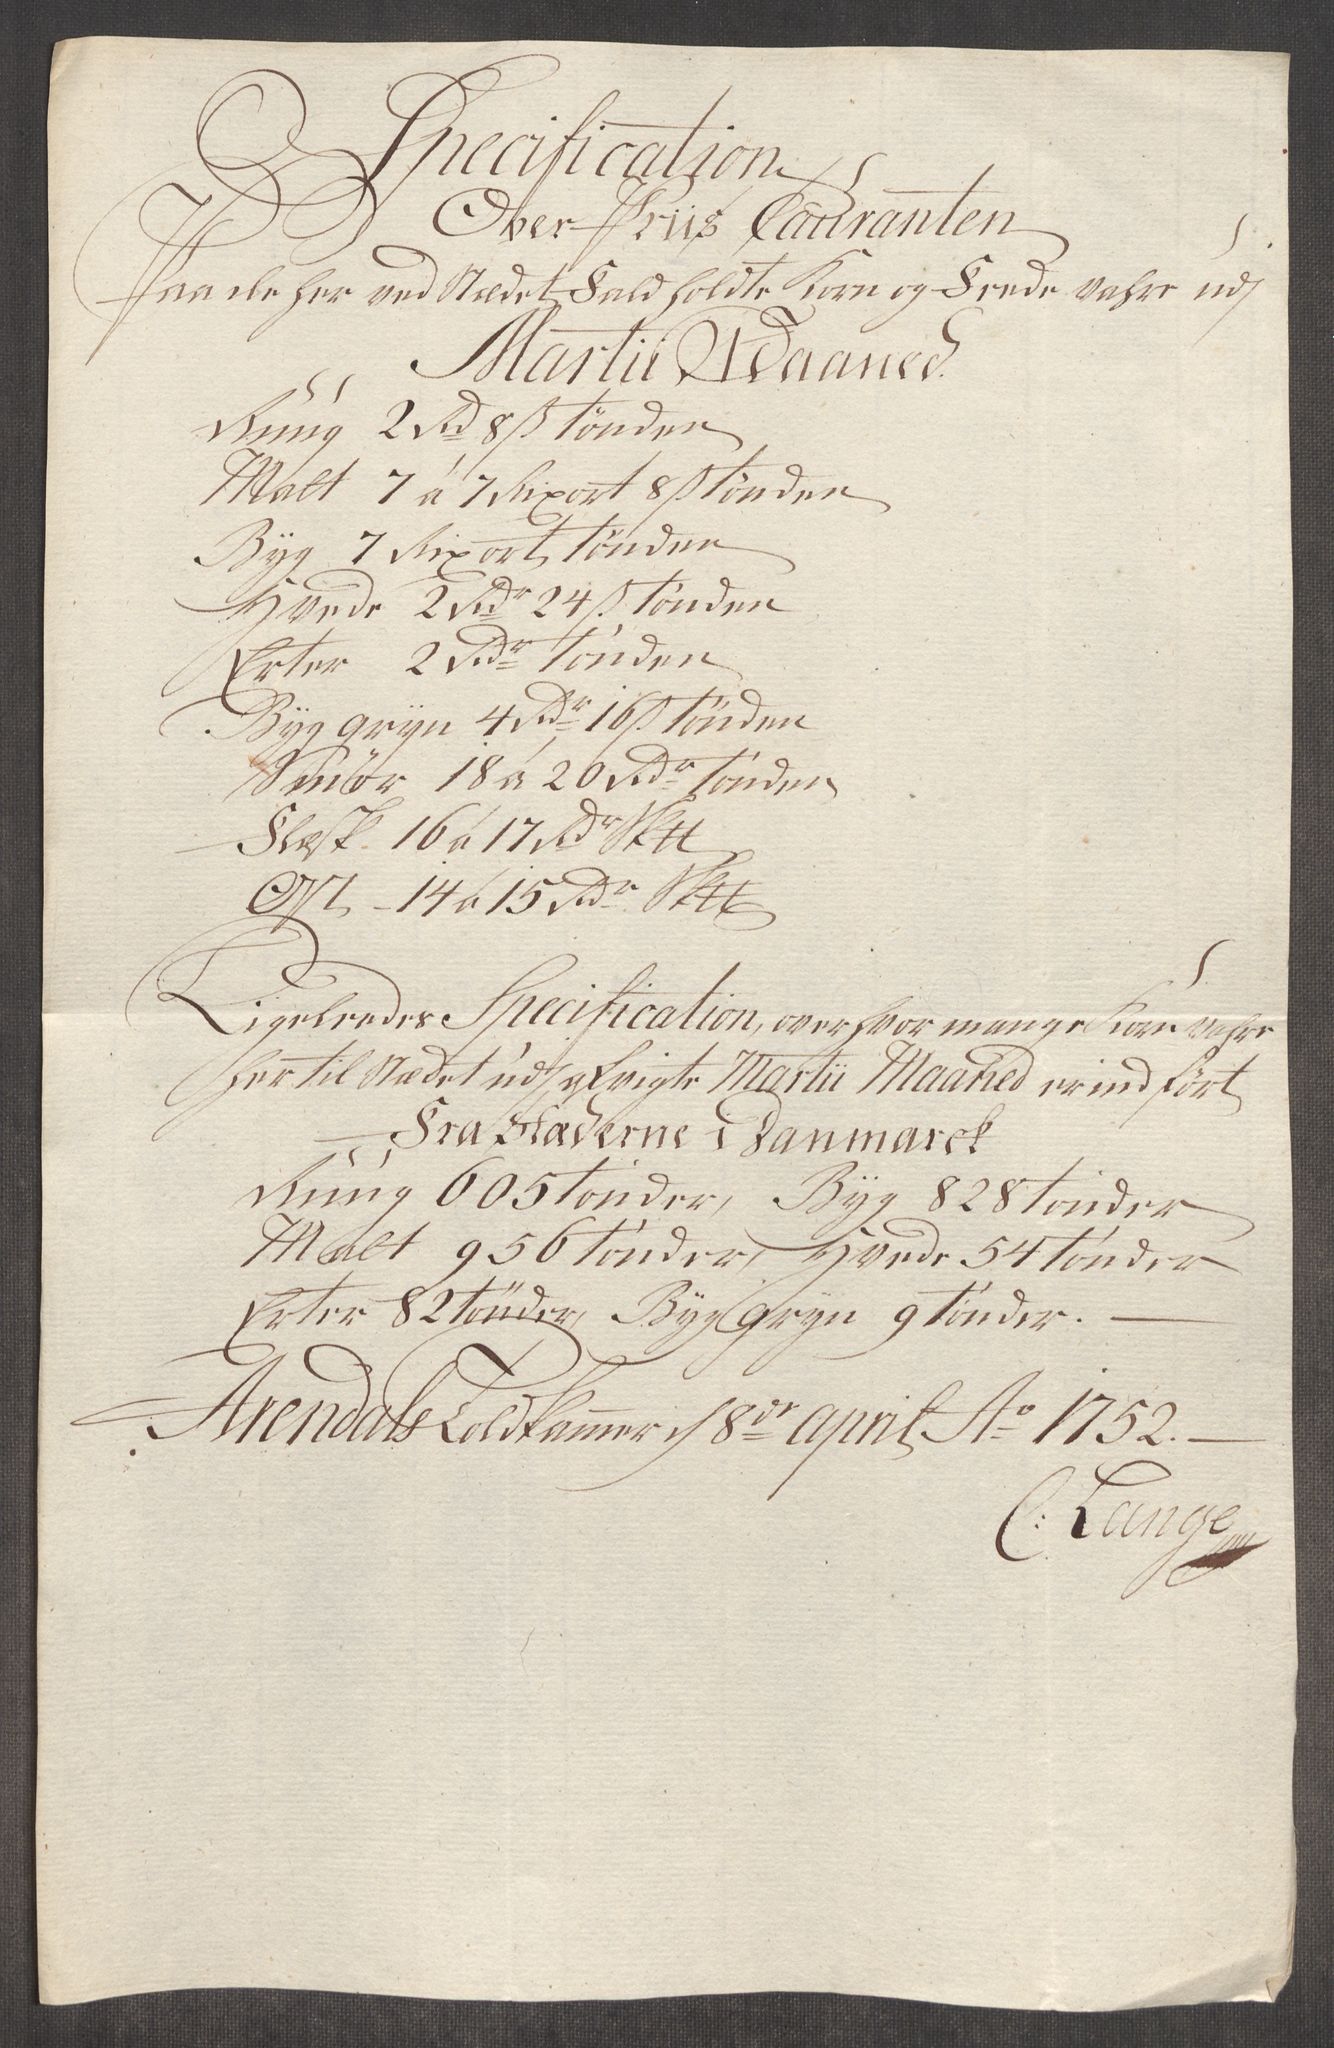 Specification
Over Priis Couranten
Paa de her ved Stædet Fald holdte Korn og Feede vahre udj
Martii Maaned
Rúug 2 Rd 8 ß tönden
Malt 7 á 7 Rixort 8 ß tönden
Byg 7 Rixort tönden
Hvede 2 Rdr 24 ß tönden
Erter 2 Rdr tönden
Byg gryn 4 Rdr 16 ß tönden
Smör 18 á 20 Rdr tönden
Flæsk 16 á 17 Rdr Sktt
Ost 14 á 15 Rdr Sktt
Ligeleedes Specification, over hvor mange Korn vahre
her til Stædet udj Martii Maaned er ind ført
Fra Stæderne i Danmarck
Rúug 605 tönder, Byg 828 tönder
Malt 956 tönder, Hvede 54 tönder
Erter 82 tönder, Byg gryn 9 tönder. —
Arendals Toldkammer d 8de april Ao 1752. —
C: Lange